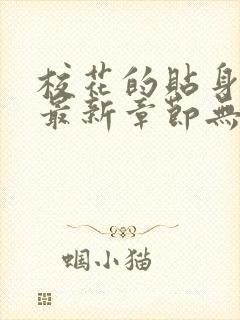 校花的貼身
最新章節無
蝈小猫